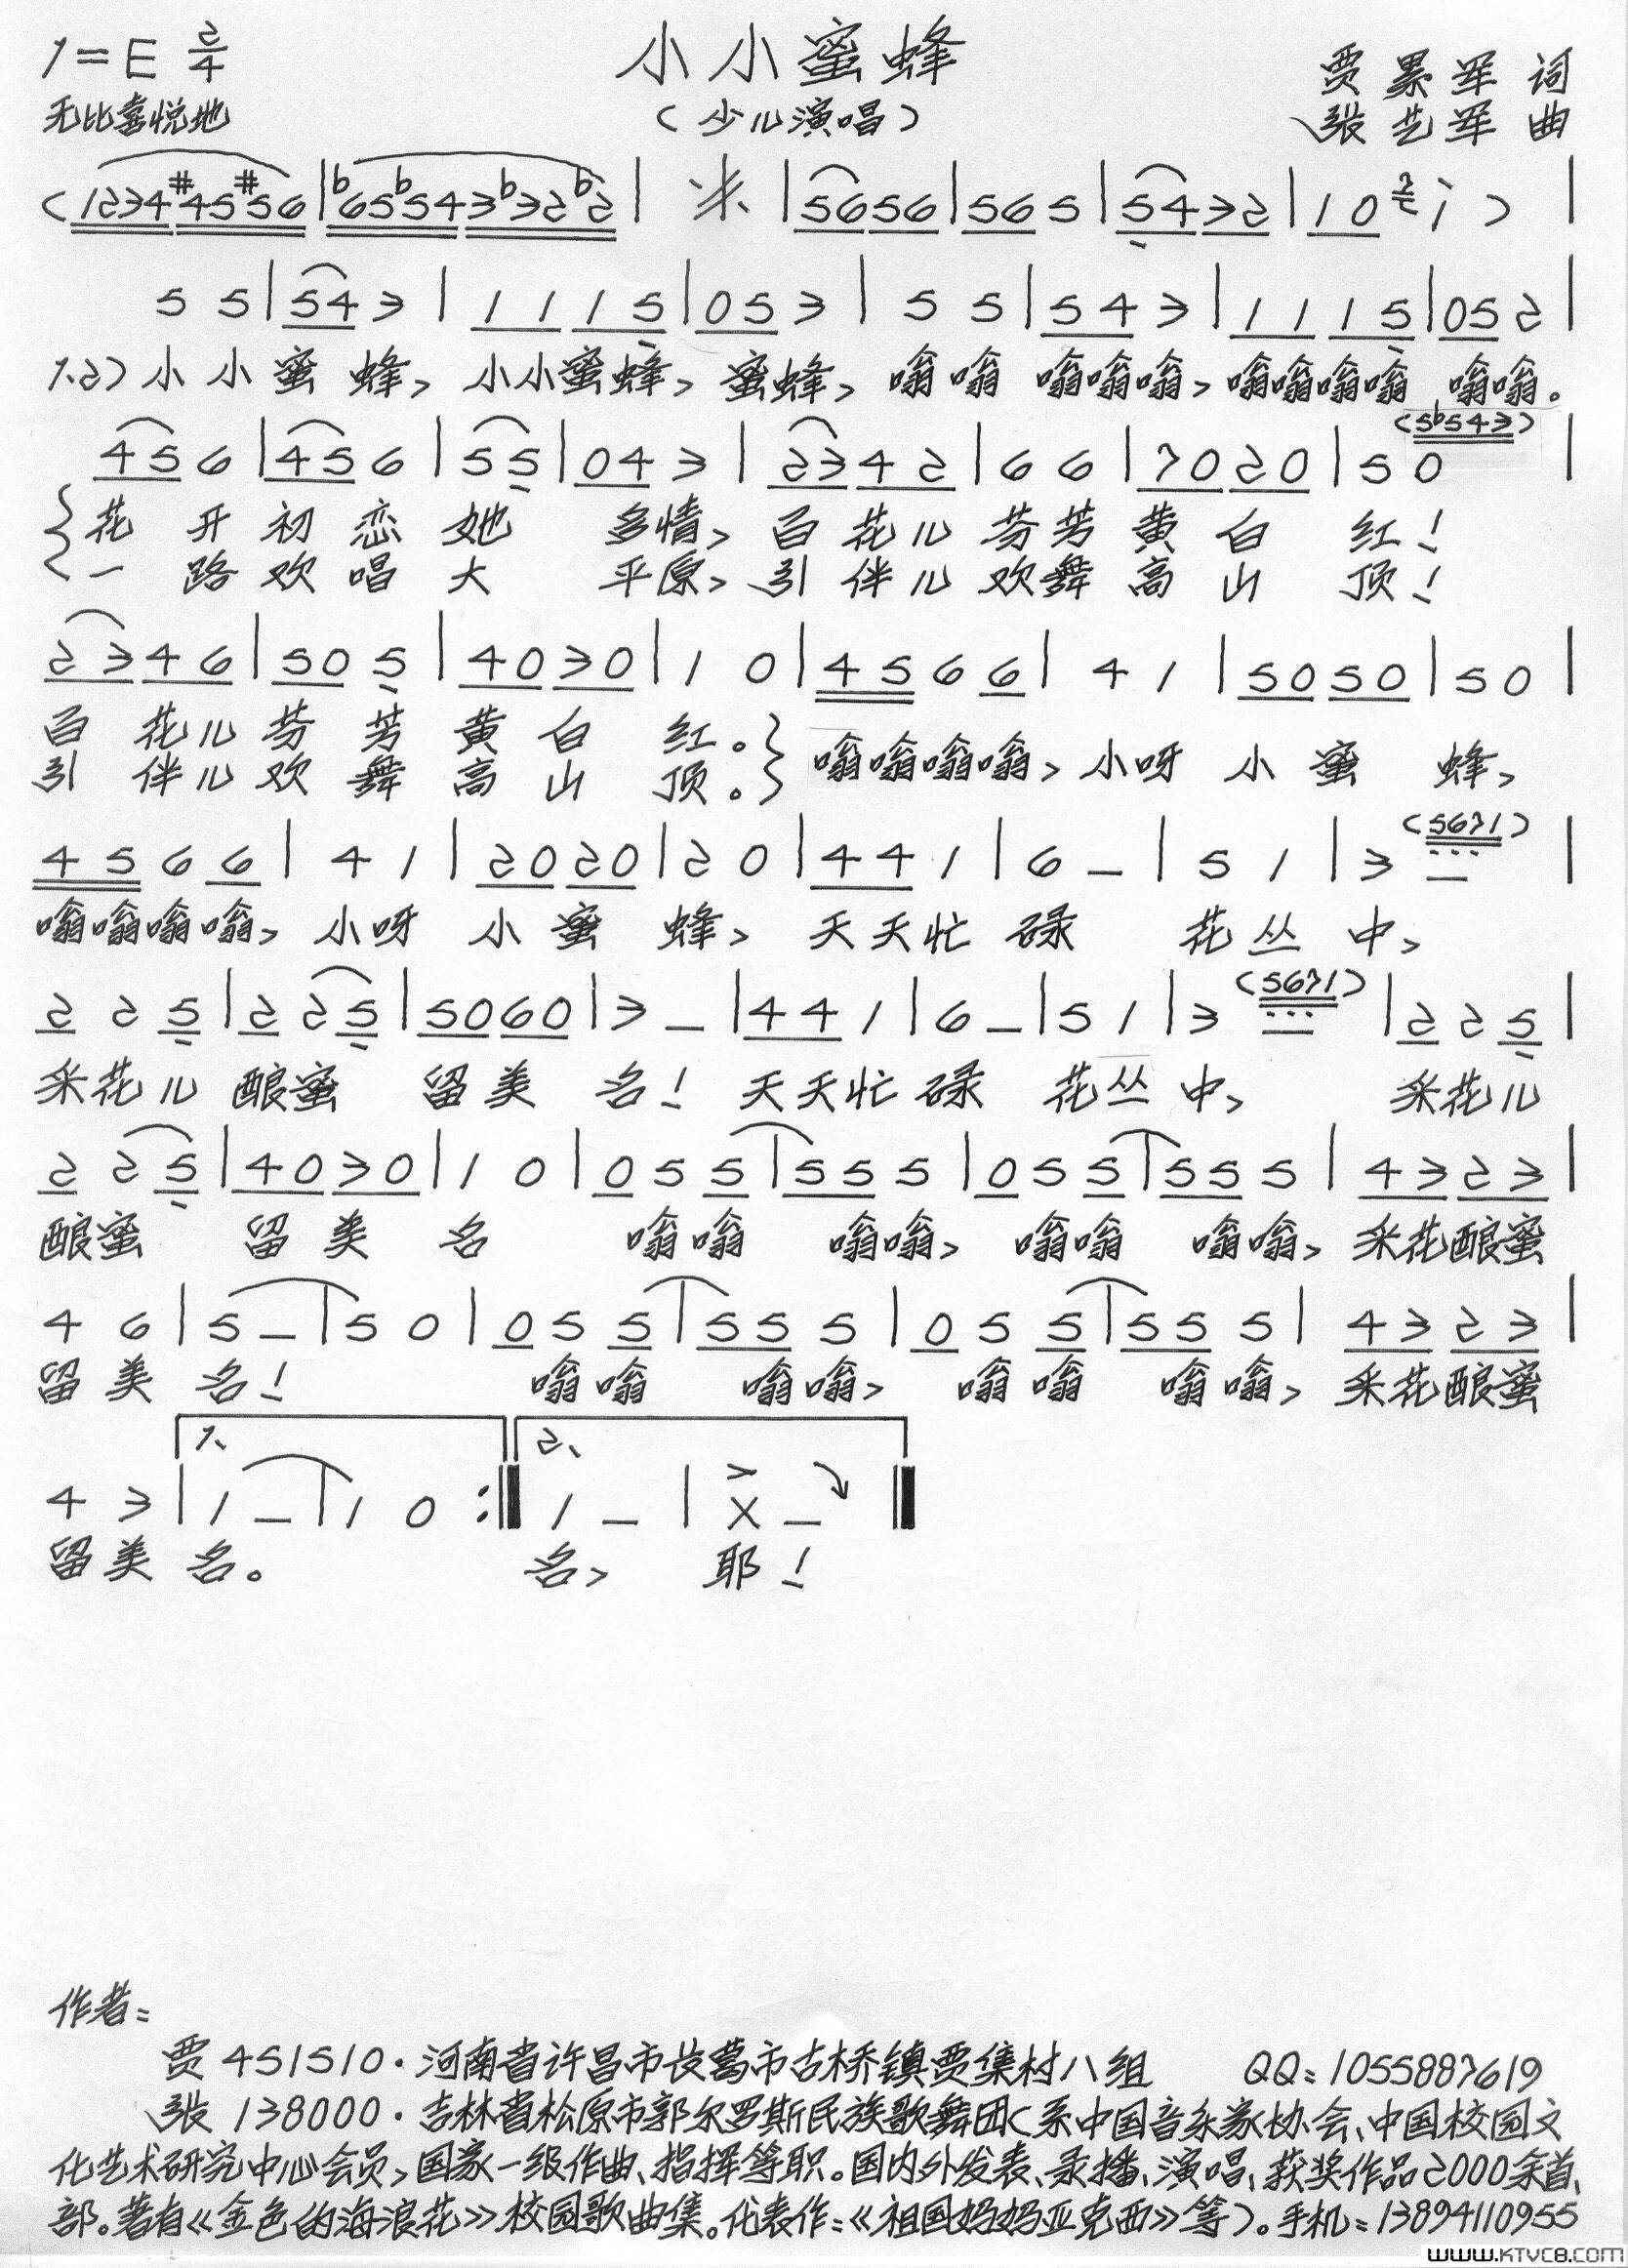 1=E 2/4
小小蜜蜂
贾累军 词
无比喜悦地
(少儿演唱)
张艺军 曲
(1234#45#56|b65b543b32b2| 米 |5656|565|5432|10 2/7 i)|
5 5|54 3|1 1 1 5|05 3|5 5|54 3|1 1 1 5|05 2|
1.2)小小蜜蜂,小小蜜蜂,蜜蜂,嗡嗡 嗡嗡嗡,嗡嗡嗡嗡 嗡嗡。
(5b543)
45 6|45 6|55|04 3|2342|6 6|7020|5 0|
花开初恋她 多情,百花儿芬芳黄白 红!
一路欢唱大 平原,引伴儿欢舞高山 顶!
2346|50 5|4030|1 0|45 6 6|4 1|5050|5 0|
百花儿芬芳黄白 红。
引伴儿欢舞高山 顶。
嗡嗡嗡嗡,小呀小蜜 蜂,
(5671)
45 6 6|4 1|2020|2 0|44 1|6 –|5 1|3 –|
嗡嗡嗡嗡,小呀 小蜜 蜂,天天忙碌 花丛中,
(5671)
2 2 5|2 2 5|5060|3 –|44 1|6 –|5 1|3 –|2 2 5|
采花儿 酿蜜 留美 名!天天忙碌 花丛中, 采花儿
2 2 5|4030|1 0|0 5 5|55 5|0 5 5|55 5|4323|
酿蜜 留美 名 嗡嗡 嗡嗡,嗡嗡 嗡嗡,采花酿蜜
4 6|5 –|5 0|0 5 5|55 5|0 5 5|55 5|4323|
留美 名! 嗡嗡 嗡嗡, 嗡嗡 嗡嗡,采花酿蜜
1、 2、
4 3|1 –|1 0:‖1 –|X –‖
留美 名。 名, 耶!
作者:
贾 451510·河南省许昌市长葛市古桥镇贾集村八组 QQ:1055887619
张 138000·吉林省松原市郭尔罗斯民族歌舞团(系中国音乐家协会、中国校园文
化艺术研究中心会员,国家一级作曲、指挥等职。国内外发表、录播、演唱、获奖作品2000余首、
部。著有《金色的海浪花》校园歌曲集。代表作:《祖国妈妈亚克西》等)。手机:13894110955
www.KTVC8.com